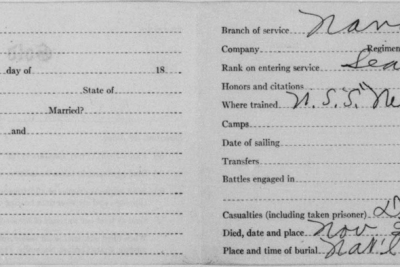 day of 18
State of
Married?
and
Branch of service
Company Regimen
Rank on entering service Sea
Honors and citations
Where trained U.S.S. Ne
Camps
Date of sailing
Transfers
Battles engaged in
Casualties (including taken prisoner)
Died, date and place Nov
Place and time of burial Nat'l